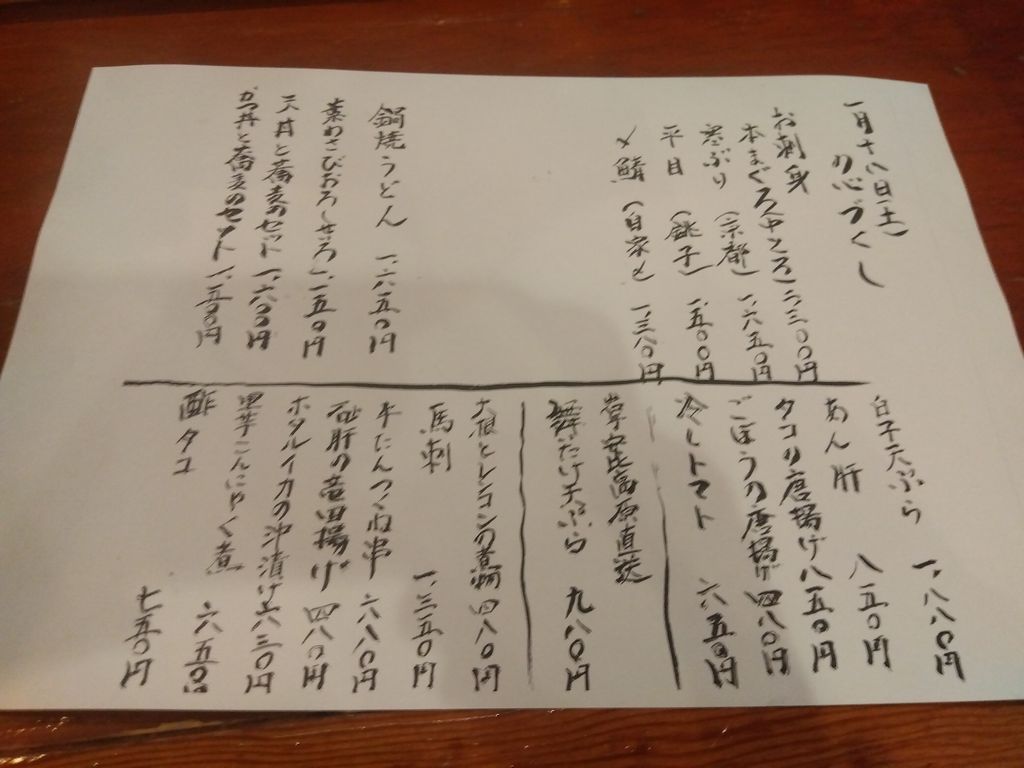 一月十八日(土)
の心づくし
お刺身
本まぐろ(中とろ)二、三〇〇円
寒ぶり (宗都) 一、六五〇円
平目 (銚子) 一、五〇〇円
〆鯖 (自家〆) 一、三八〇円
鍋焼うどん 一、六五〇円
葉わさびおろしせいろ 一、一五〇円
天丼と蕎麦のセット 一、六〇〇円
かつ丼と蕎麦のセット 一、一五〇〇円
白子天ぷら 一、八八〇円
あん肝 八五〇円
タコの唐揚げ 八五〇円
ごぼうの唐揚げ 四八〇円
冷しトマト 六五〇円
高原直送
舞たけ天ぷら 九八〇円
大根とレンコンの煮物 四八〇円
馬刺 一、三五〇円
牛たんつくね串 六八〇円
砂肝の竜田揚げ 四八〇円
ホタルイカの沖漬け 六八三〇円
里芋こんにゃく煮 六五〇円
酢タコ 七五〇円